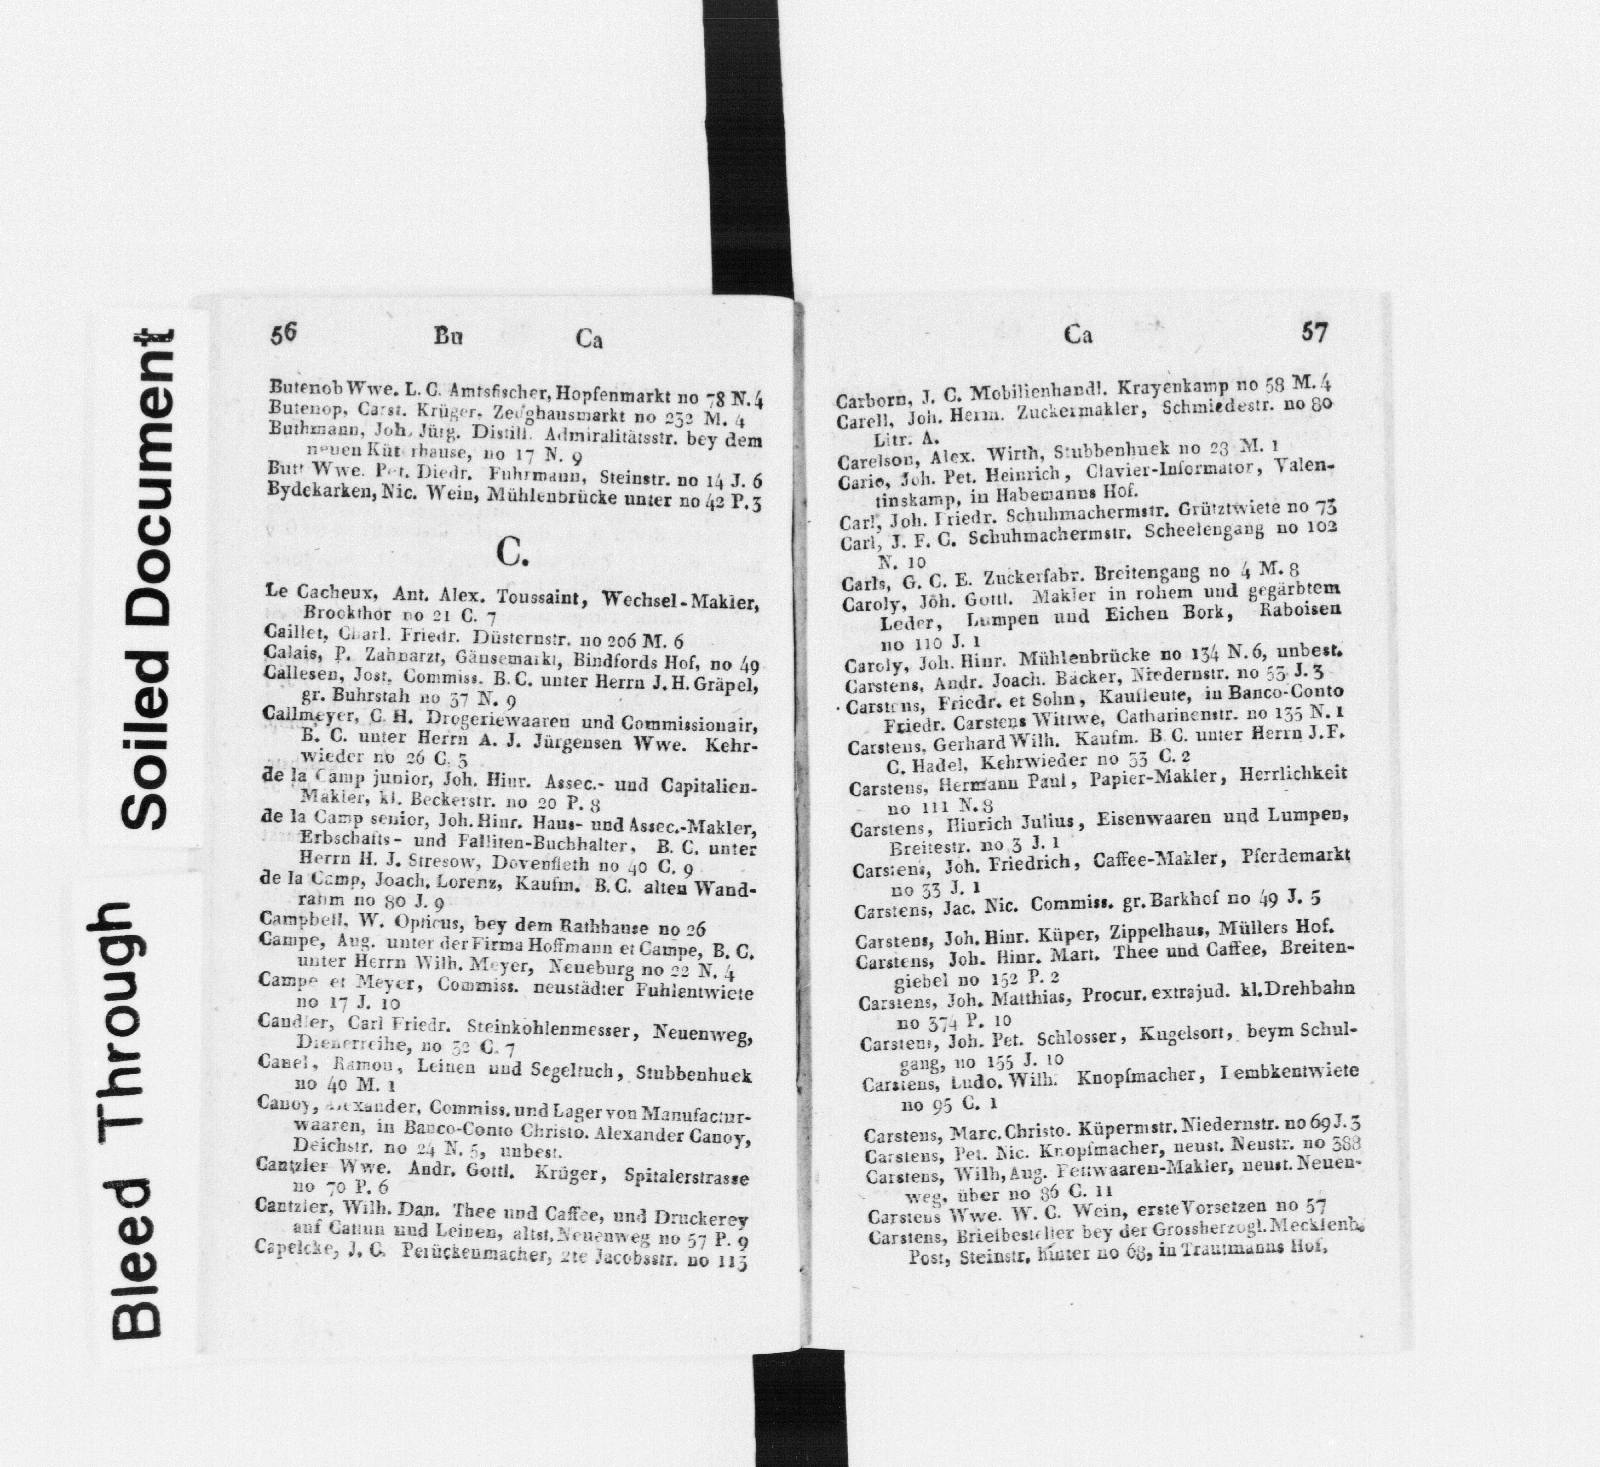 Soiled Document
Bleed Through
56 Bu Ca
Butenob Wwe. L. C. Amtsfischer, Hopfenmarkt no 78 N. 4
Butenop, Carst. Krüger, Zeughausmarkt no 232 M. 4
Buthmann, Joh. Jürg. Distill. Admiralitätsstr. bey dem
neuen Küterhause, no 17 N. 9
Butt Wwe. Pet. Diedr. Fuhrmann, Steinstr. no 14 J. 6
Bydekarken, Nic. Wein, Mühlenbrücke unter no 42 P. 3
C.
Le Cacheux, Ant. Alex. Toussaint, Wechsel-Makler,
Brockthor no 21 C. 7
Caillet, Charl. Friedr. Düsternstr. no 206 M. 6
Calais, P. Zahnarzt, Gänsemarkt, Bindfords Hof, no 49
Callesen, Jost. Commiss. B. C. unter Herrn J. H. Gräpel,
gr. Buhrstah no 37 N. 9
Callmeyer, C. H. Drogeriewaaren und Commissionair,
B. C. unter Herrn A. J. Jürgensen Wwe. Kehr-
wieder no 26 C. 3
de la Camp junior, Joh. Hinr. Assec.- und Capitalien-
Makler, kl. Beckerstr. no 20 P. 8
de la Camp senior, Joh. Hinr. Haus- und Assec.-Makler,
Erbschafts- und Falliten-Buchhalter, B. C. unter
Herrn H. J. Stresow, Dovenfleth no 40 C. 9
de la Camp, Joach. Lorenz, Kaufm. B. C. alten Wand-
rahm no 80 J. 9
Campbell, W. Opticus, bey dem Rathhause no 26
Campe, Aug. unter der Firma Hoffmann et Campe, B. C.
unter Herrn Wilh. Meyer, Neueburg no 22 N. 4
Campe et Meyer, Commiss. neustädter Fuhlentwiete
no 17 J. 10
Candler, Carl Friedr. Steinkohlenmesser, Neuenweg,
Dienerreihe, no 32 C. 7
Canel, Ramon, Leinen und Segeltuch, Stubbenhuek
no 40 M. 1
Canoy, Alexander, Commiss. und Lager von Manufactur-
waaren, in Banco-Conto Christo. Alexander Canoy,
Deichstr. no 24 N. 5, unbest.
Cantzler Wwe. Andr. Gottl. Krüger, Spitalerstrasse
no 70 P. 6
Cantzler, Wilh. Dan. Thee und Caffee, und Druckerey
auf Cattun und Leinen, altst. Neuenweg no 57 P. 9
Capelcke, J. C. Perückenmacher, 2te Jacobsstr. no 113
Ca 57
Carborn, J. C. Mobilienhandl. Krayenkamp no 58 M. 4
Carell, Joh. Herm. Zuckermakler, Schmiedestr. no 80
Litr. A.
Carelson, Alex. Wirth, Stubbenhuek no 23 M. 1
Cario, Joh. Pet. Heinrich, Clavier-Informator, Valen-
tinskamp, in Habemanns Hof.
Carl, Joh. Friedr. Schuhmachermstr. Grütztwiete no 73
Carl, J. F. C. Schuhmachermstr. Scheelengang no 102
N. 10
Carls, G. C. E. Zuckerfabr. Breitengang no 4 M. 8
Caroly, Joh. Gottl. Makler in rohem und gegärbtem
Leder, Lumpen und Eichen Bork, Raboisen
no 110 J. 1
Caroly, Joh. Hinr. Mühlenbrücke no 134 N. 6, unbest.
Carstens, Andr. Joach. Bäcker, Niedernstr. no 53 J. 3
Carstens, Friedr. et Sohn, Kaufleute, in Banco-Conto
Friedr. Carstens Wittwe, Catharinenstr. no 135 N. 1
Carstens, Gerhard Wilh. Kaufm. B. C. unter Herrn J. F.
C. Hadel, Kehrwieder no 33 C. 2
Carstens, Hermann Paul, Papier-Makler, Herrlichkeit
no 111 N. 8
Carstens, Hinrich Julius, Eisenwaaren und Lumpen,
Breitestr. no 3 J. 1
Carstens, Joh. Friedrich, Caffee-Makler, Pferdemarkt
no 33 J. 1
Carstens, Jac. Nic. Commiss. gr. Barkhof no 49 J. 5
Carstens, Joh. Hinr. Küper, Zippelhaus, Müllers Hof.
Carstens, Joh. Hinr. Mart. Thee und Caffee, Breiten-
giebel no 152 P. 2
Carstens, Joh. Matthias, Procur. extrajud. kl. Drehbahn
no 374 P. 10
Carstens, Joh. Pet. Schlosser, Kugelsort, beym Schul-
gang, no 155 J. 10
Carstens, Ludo. Wilh. Knopfmacher, Lembkentwiete
no 95 C. 1
Carstens, Marc. Christo. Küpermstr. Niedernstr. no 69 J. 3
Carstens, Pet. Nic. Knopfmacher, neust. Neustr. no 388
Carstens, Wilh. Aug. Fettwaaren-Makler, neust. Neuen-
weg, über no 86 C. 11
Carstens Wwe. W. C. Wein, erste Vorsetzen no 57
Carstens, Briefbesteller bey der Grossherzogl. Mecklenb.
Post, Steinstr. hinter no 68, in Trautmanns Hof.